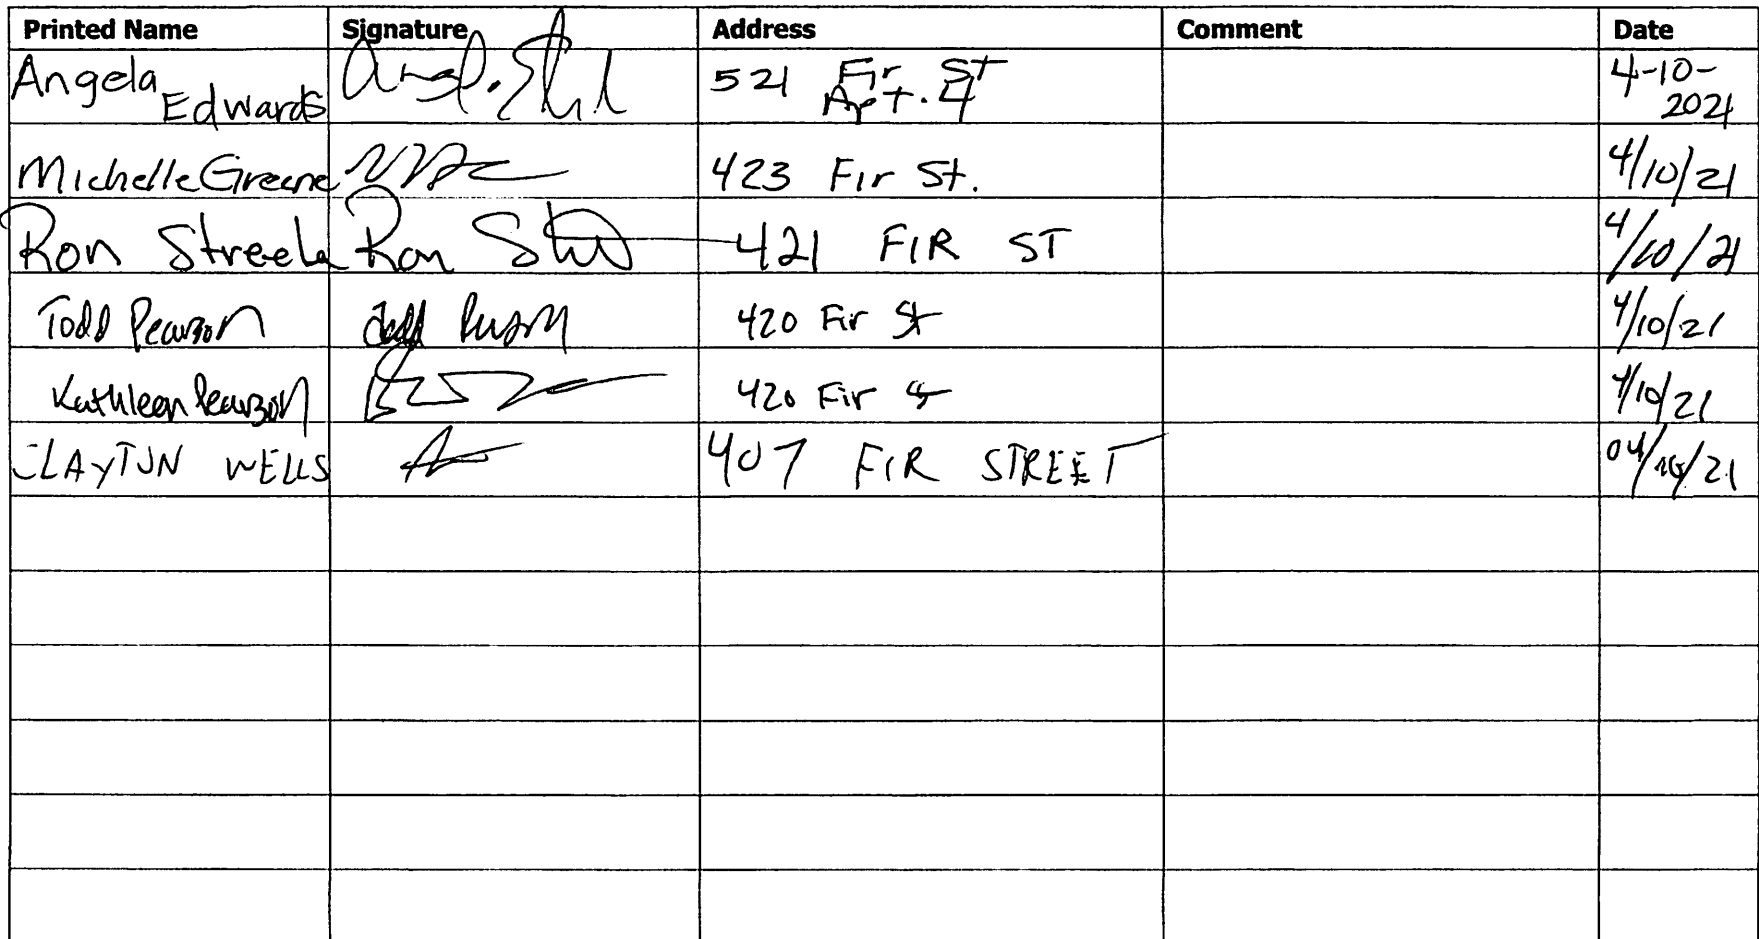 Printed Name Signature Address Comment Date
Angela Edwards 521 Fir St Apt. 4 4-10-2021
Michelle Greene 423 Fir St. 4/10/21
Ron Ron 421 FIR ST 4/10/21
Todd Pearson Todd Pearson 420 Fir St 4/10/21
Kathleen Pearson 420 Fir St 4/10/21
CLAYTON WELLS 407 FIR STREET 04/10/21